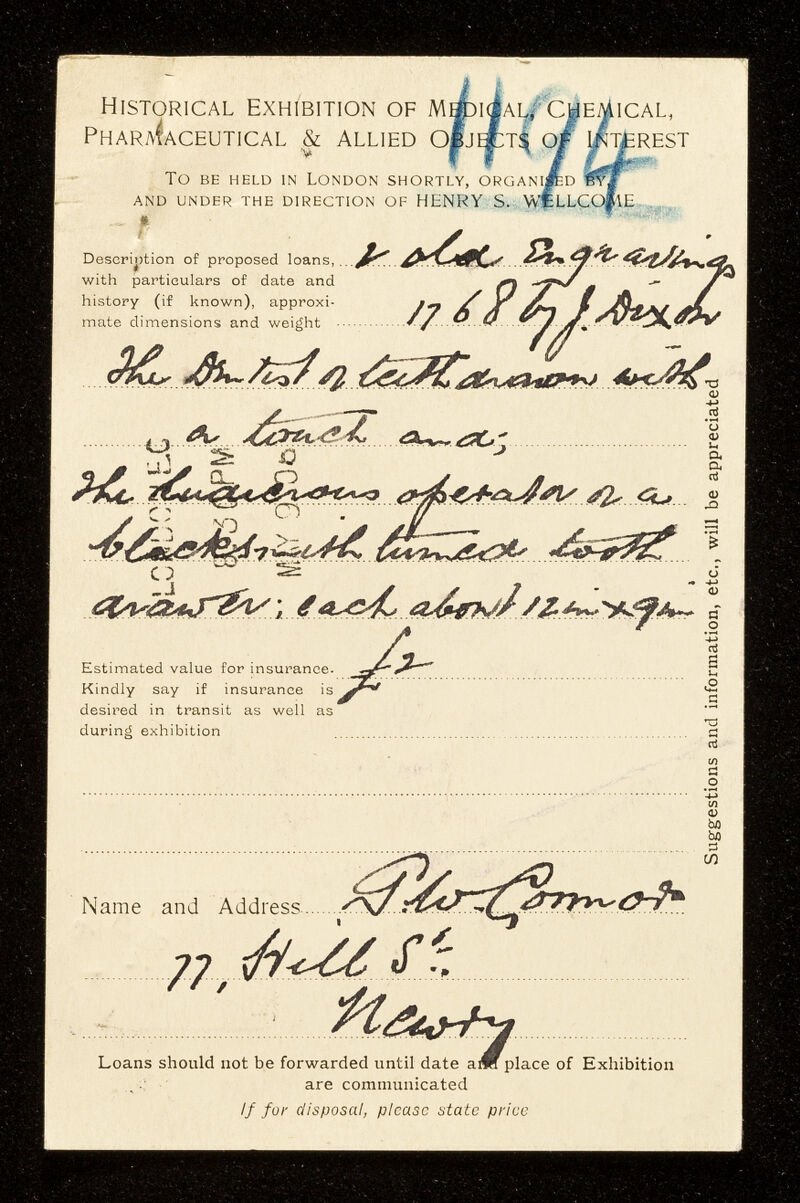 1194
HISTORICAL EXHIBITION OF MEDICAL, CHEMICAL,
PHARMACEUTICAL & ALLIED OBJECTS OF INTEREST
TO BE HELD IN LONDON SHORTLY, ORGANISED BY,
AND UNDER THE DIRECTION OF HENRY S. WELLCOME
Description of proposed loans, 2 old Engravings
with particulars of date and
history (if known), approxi-
mate dimensions and weight 1768 by J. Dixon
The Dentist or teeth drawn with
a touch and;
The Ludicrous operator or a
blacksmith turned tooth
drawer; each about 12 in x 9 in
LONDON E.C
8.30 PM
MY 9
Estimated value for insurance. £2
Kindly say if insurance is
desired in transit as well as
during exhibition
Name and Address P. W. Connor
77, Hill St.
Newry
Loans should not be forwarded until date and place of Exhibition
are communicated
If for disposal, please state price
Suggestions and information, etc., will be appreciated